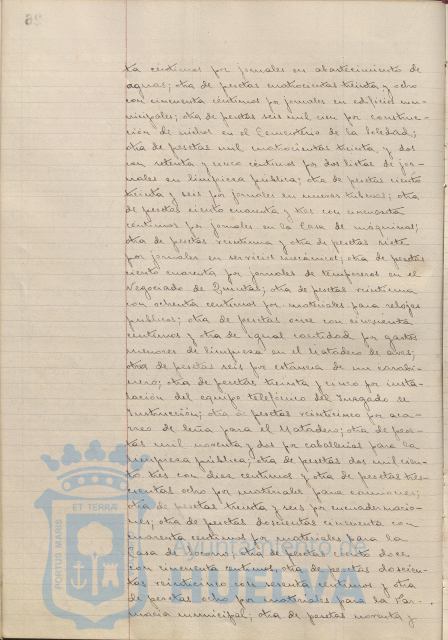 ta centimos por jornales en abastecimiento de
aguas; otra de pesetas cuatrocientas treinta y ocho
con cincuenta centimos por jornales en edificios mu-
nicipales; otra de pesetas seis mil cien por construc-
ción de nichos en el Cementerio de la Soledad;
otra de pesetas mil cuatrocientas treinta y dos
con setenta y cinco centimos por dos listas de jor-
nales en limpieza pública; otra de pesetas ciento
treinta y seis por jornales en nuevas tuberias; otra
de pesetas ciento cuarenta y tres con cincuenta
centimos por jornales en la Casa de máquinas;
otra de pesetas veintiuna y otra de pesetas siete
por jornales en servicios mecánicos; otra de pesetas
ciento cuarenta por jornales de temporeros en el
Negociado de Quintas; otra de pesetas veintiuna
con ochenta centimos por materiales para relojes
públicos; otra de pesetas once con cincuenta
centimos y otra de igual cantidad por gastos
menores de limpieza en el Matadero de aves;
otra de pesetas seis por estancia de un carabi-
nero; otra de pesetas treinta y cinco por insta-
lación del equipo telefónico del Juzgado de
Instrucción; otra de pesetas veinticinco por aca-
rreo de leña para el Matadero; otra de pese-
tas mil noventa y dos por caballerias para la
limpieza pública; otra de pesetas dos mil cien-
to tres con diez centimos y otra de pesetas tres-
cientas ocho por materiales para camiones;
otra de pesetas treinta y seis por encuadernacio-
nes; otra de pesetas doscientas cincuenta con
cuarenta centimos por materiales para la
Casa de Socorro; otra de pesetas ciento doce
con cincuenta centimos, otra de pesetas doscien-
tas veinticinco con sesenta centimos y otra
de pesetas ocho por materiales para la Far-
macia municipal; otra de pesetas noventa y
PORTUS MARIS
ET TERRAE
Ayuntamiento de
HUELVA